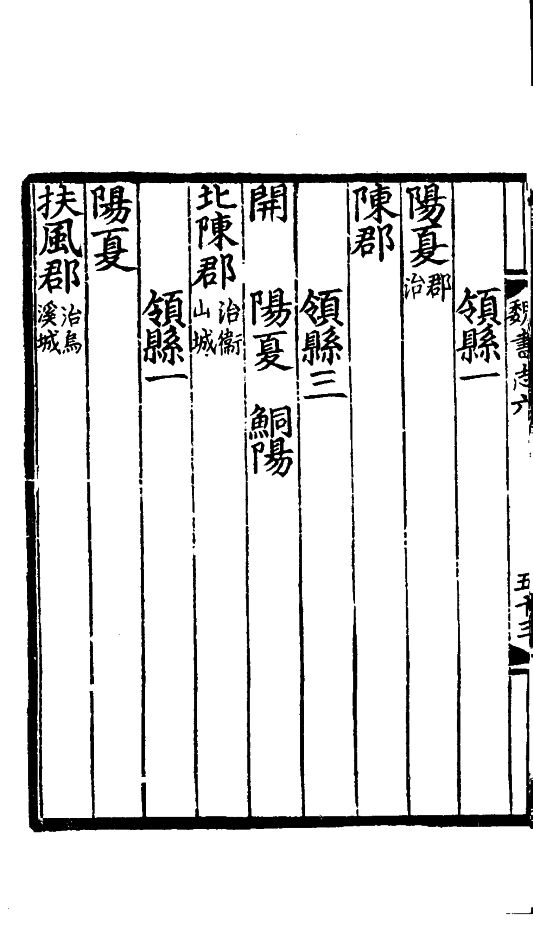 魏書志六
五十三
領縣一
陽夏郡治
陳郡
領縣三
開 陽夏 鮦陽
北陳郡治衞山城
領縣一
陽夏
扶風郡治烏溪城